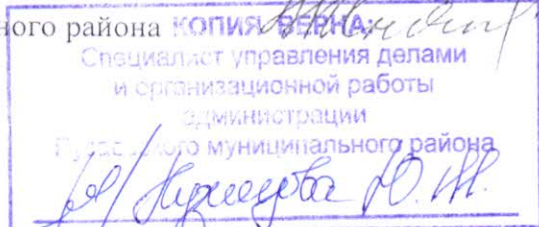 ного района КОПИЯ ВЕРНА:
Специалист управления делами
и организационной работы
администрации
муниципального района
Ю.